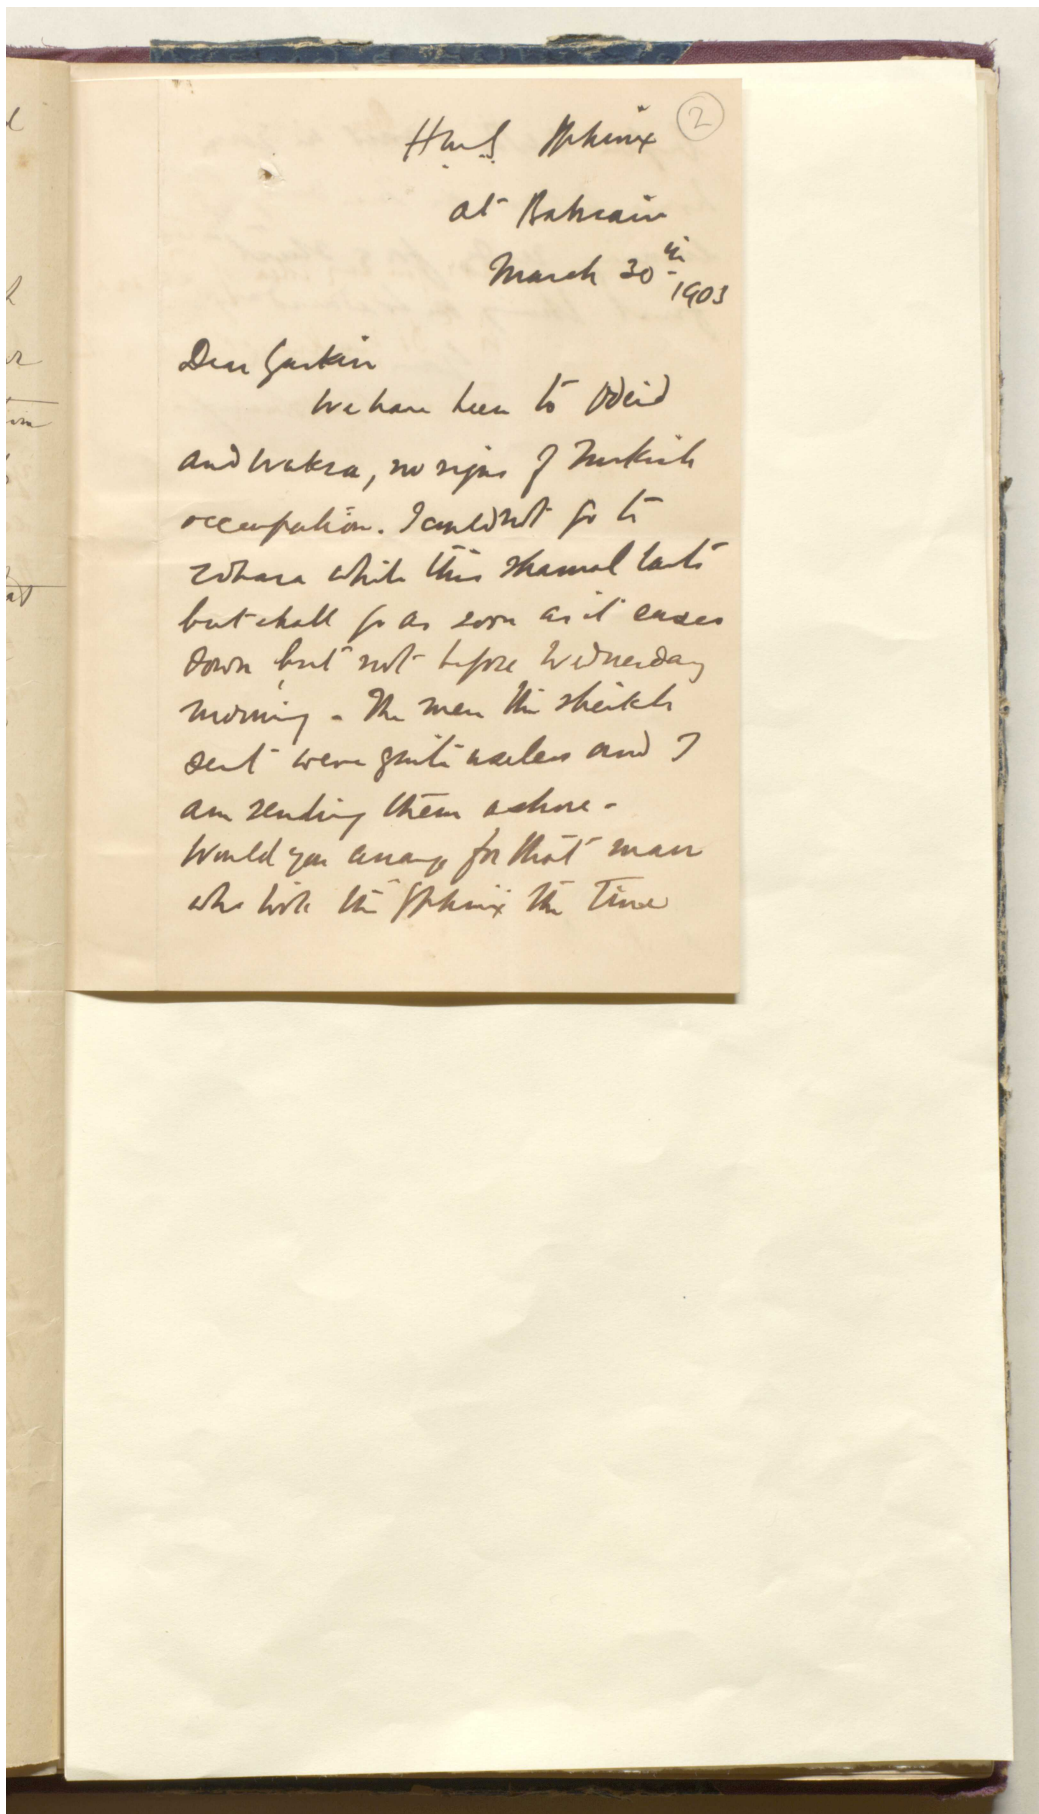 2
H.M.S. Sphinx
at Bahrain
March 30th
1903
Dear Gaskin
We have been to Odeid
and Wakra, no signs of Turkish
occupation. I could not go to
Zobara while this shamal lasts
but shall go as soon as it eases
down but not before Wednesday
morning - The men the sheikh
sent were quite useless and I
am sending them ashore -
Would you arrange for that man
who took the Sphinx the time